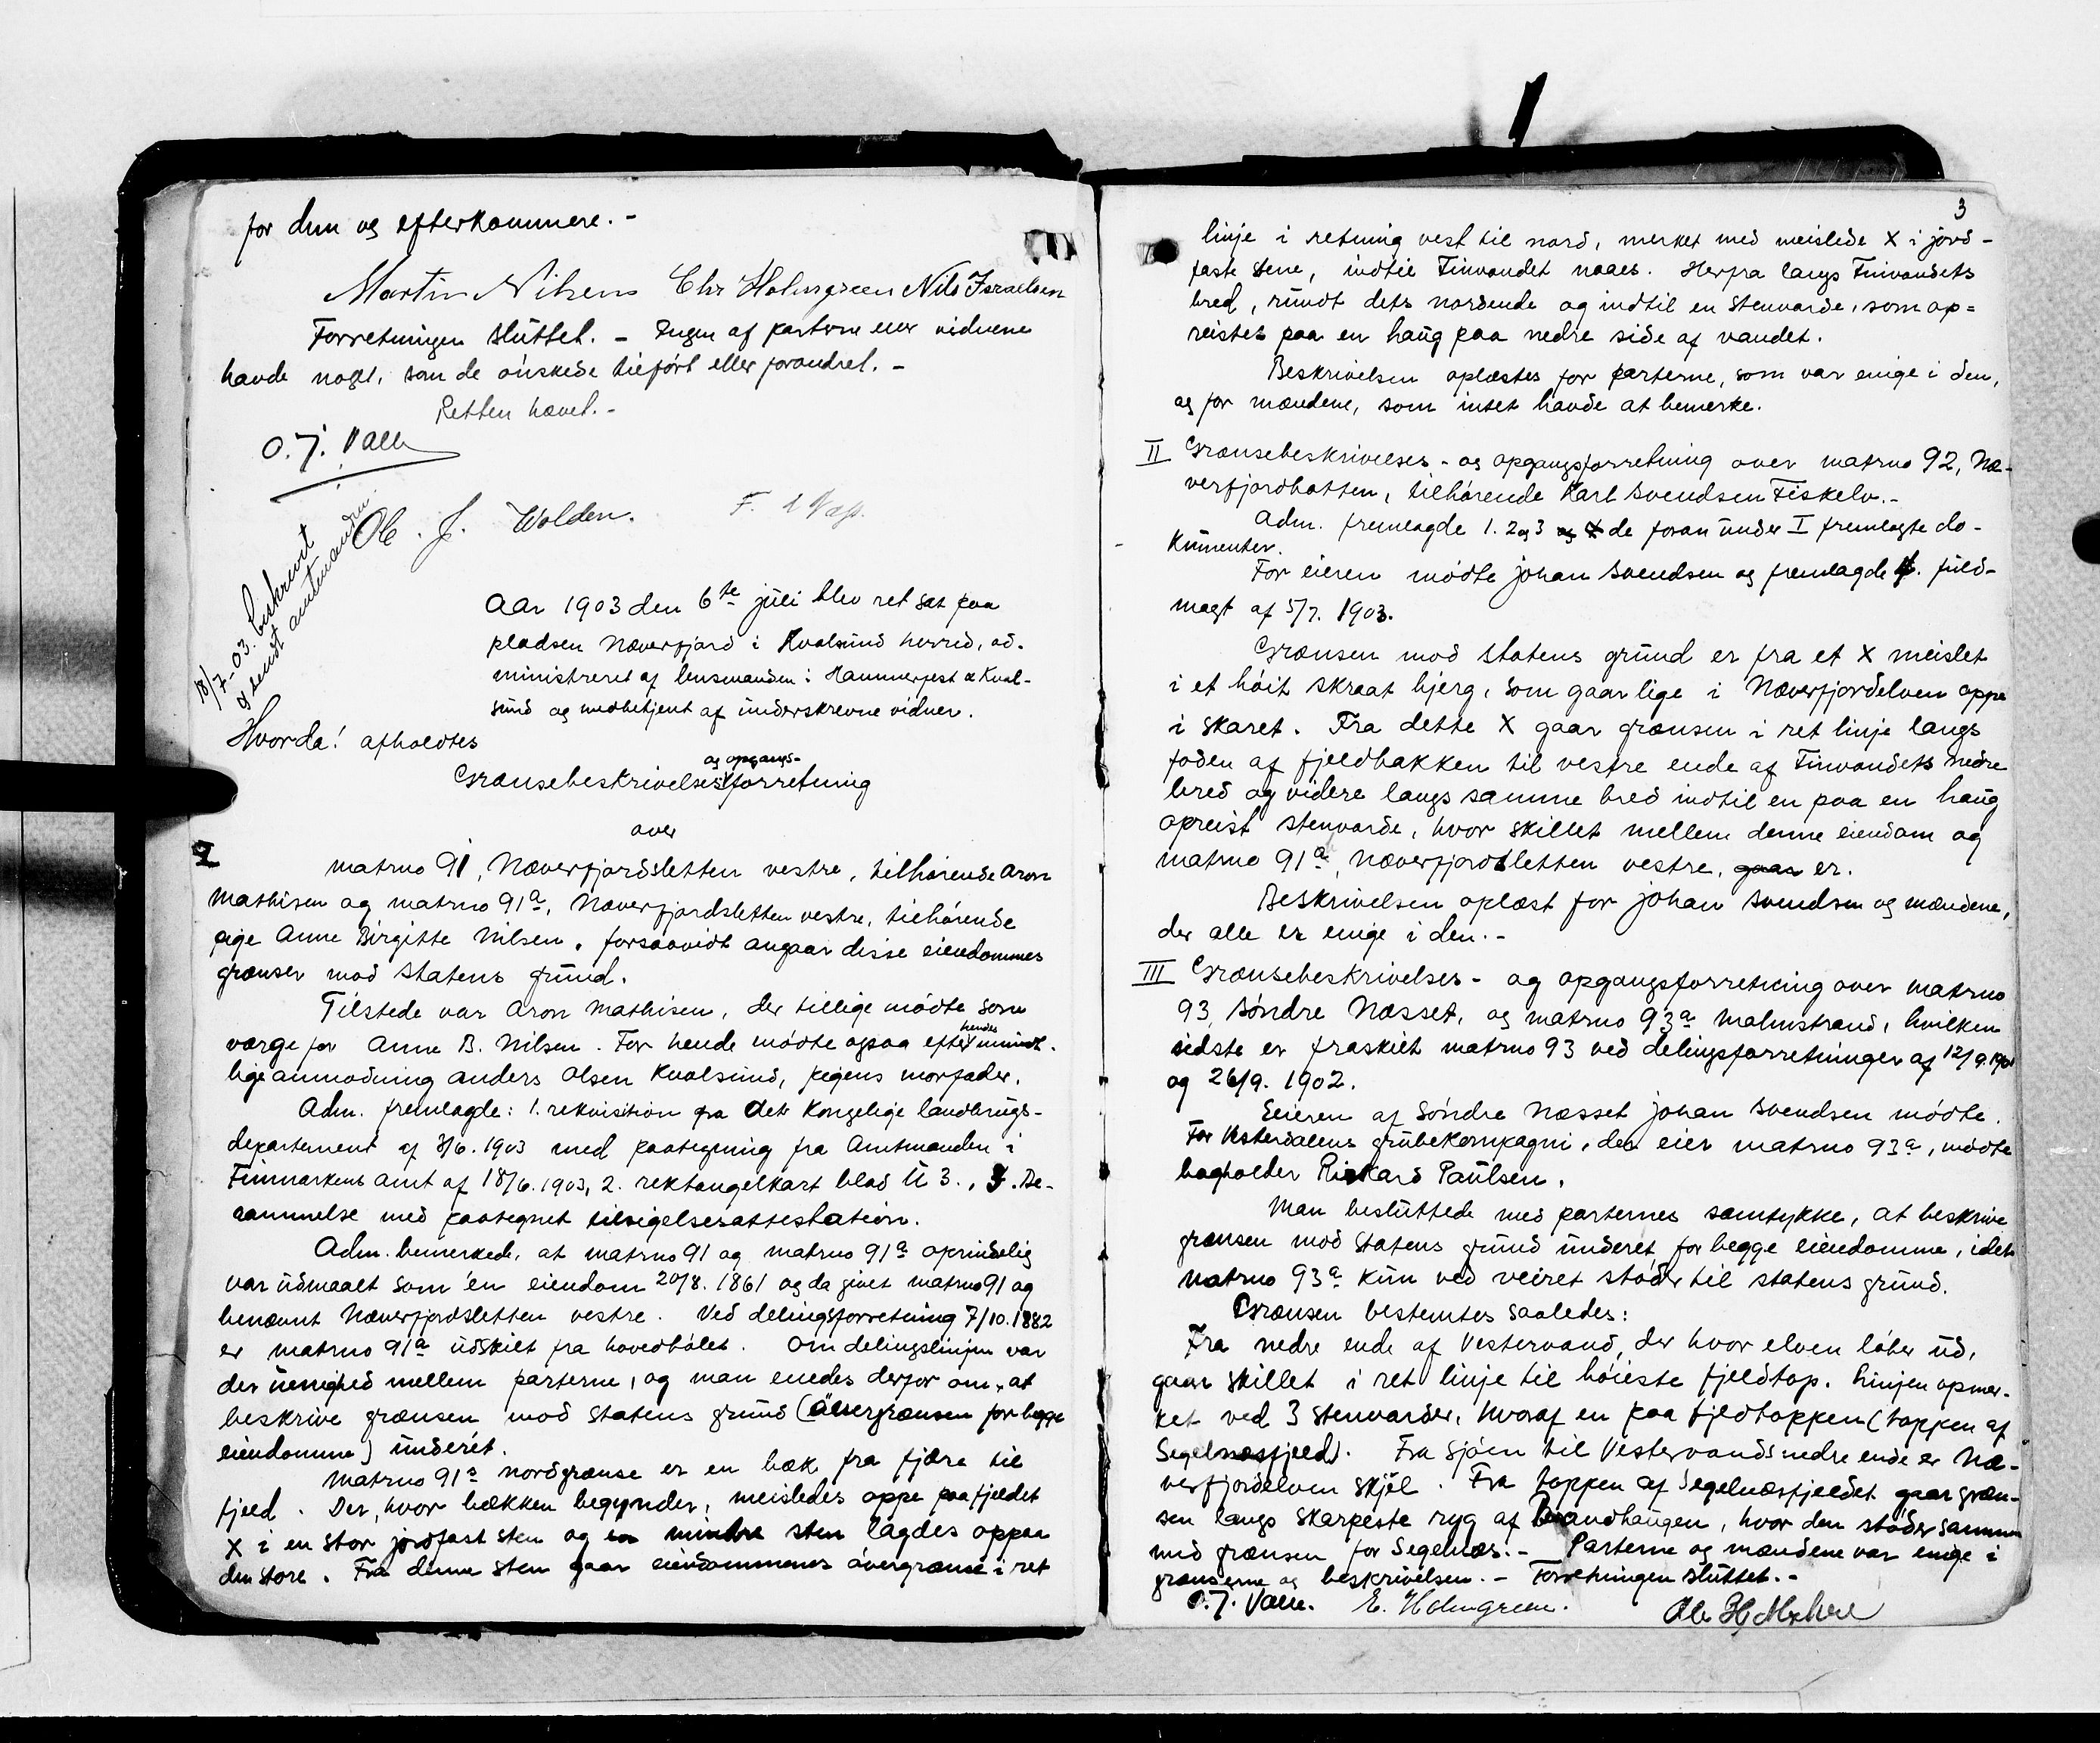 for dem og efterkommere. -
Martin Nilsen Chr Holmgreen Nils Israelsen
Forretningen sluttet. - Ingen af parterne eller vidnene
havde noget, som de ønskede tilført eller forandret. -
Retten hævet. -
O. J. Valle
Ole. J. Wolden.
18/7-03. beskrevet
og sendt amtmanden
Aar 1903 den 6te juli blev ret sat paa
pladsen Næverfjord i Kvalsund herred, ad-
ministreret af lensmanden i Hammerfest & Kval-
sund og medbetjent af underskrevne vidner.
Hvorda! afholdtes
og opgangs-
Grænsebeskrivelses forretning
over
I
matrno 91, Næverfjordsletten vestre, tilhørende Aron
Mathisen og matrno 91a, Næverfjordsletten vestre, tilhørende
pige Anne Birgitte Nilsen, forsaavidt angaar disse eiendommes
grænser mod statens grund.
Tilstede var Aron Mathisen, der tillige mødte som
værge for Anne B. Nilsen. For hende mødte ogsaa efter hendes mundt-
lige anmodning Anders Olsen Kvalsund, pigens morfader.
Adm. fremlagde: 1. rekvisition fra Det Kongelige landbrugs-
departement af 3/6. 1903 med paategning fra Amtmanden i
Finmarkens amt af 18/6. 1903, 2. rektangelkart blad U 3., 3. Be-
rammelse med paategnet tilsigelsesattestation.
Adm. bemerkede, at matrno 91 og matrno 91a oprindelig
var udmaalt som én eiendom 20/8. 1861 og da givet matrno 91 og
benævnt Næverfjordsletten vestre. Ved delingsforretning 7/10. 1882
er matrno 91a udskilt fra hovedbølet. Om delingslinjen var
der uenighed mellem parterne, og man enedes derfor om, at
beskrive grænsen mod statens grund ( for begge
eiendomme) underét.
Matrno 91a nordgrænse er en bæk fra fjære til
fjeld. Der, hvor bækken begynder, meisledes oppe paa fjeldet
X i en stor jordfast sten og en mindre sten lagdes oppaa
den store. Fra denne sten gaar eiendommenes øvergrænse i ret
3
linje i retning vest til nord, merket med meislede X i jord-
faste stene, indtil Finvandet naaes. Herfra langs Finvandets
bred, rundt dets nordende og indtil en stenvarde, som op=
reistes paa en haug paa nedre side af vandet.
Beskrivelsen oplæstes for parterne, som var enige i den,
og for mændene, som intet havde at bemerke.
II Grænsebeskrivelses- og opgangsforretning over matrno 92, Næ-
verfjordbotten, tilhørende Karl Svendsen Fiskelv. -
Adm. fremlagde 1. 2 og 3 de foran under I fremlagte do-
kumenter.
For eieren mødte Johan Svendsen og fremlagde 4. fuld-
magt af 5/7. 1903.
Grænsen mod statens grund er fra et X meislet
i et høit skraat bjerg, som gaar lige i Næverfjordelven oppe
i skaret. Fra dette X gaar grænsen i ret linje langs
foden af fjeldbakken til vestre ende af Finvandets nedre
bred og videre langs samme bred indtil en paa en haug
opreist stenvarde, hvor skillet mellem denne eiendom og
matrno 91a, Næverfjordsletten vestre, gaar er.
Beskrivelsen oplæst for Johan Svendsen og mændene,
der alle er enige i den. -
III Grænsebeskrivelses- og opgangsforretning over matrno
93, Søndre Næsset, og matrno 93a Malmstrand, hvilken
sidste er fraskilt matrno 93 ved delingsforretninger af 12/9. 1901
og 26/9. 1902.
Eieren af Søndre Næsset Johan Svendsen mødte.
For Vesterdalens grubekompagni, der eier matrno 93a, mødte
bogholder Rikard Paulsen.
Man besluttede med parternes samtykke, at beskrive
grænsen mod statens grund underet for begge eiendomme, idet
matrno 93a kun ved veiret støder til statens grund.
Grænsen bestemtes saaledes:
Fra nedre ende af Vestervand, der hvor elven løber ud,
gaar skillet i ret linje til høieste fjeldtop. Linjen opmer-
ket ved 3 stenvarder, hvoraf en paa fjeldtoppen (toppen af
Segelnæsfjeld). Fra sjøen til Vestervands nedre ende er Næ-
verfjordelven skjøl. Fra toppen af Segelnæsfjeldet gaar græn-
sen langs skarpeste ryg af Brandhaugen, hvor den støder sammen
med grænsen for Segelnæs. - Parterne og mændene var enige i
grænserne og beskrivelsen. - Forretningen sluttet. -
O. J. Valle. E. Holmgreen.